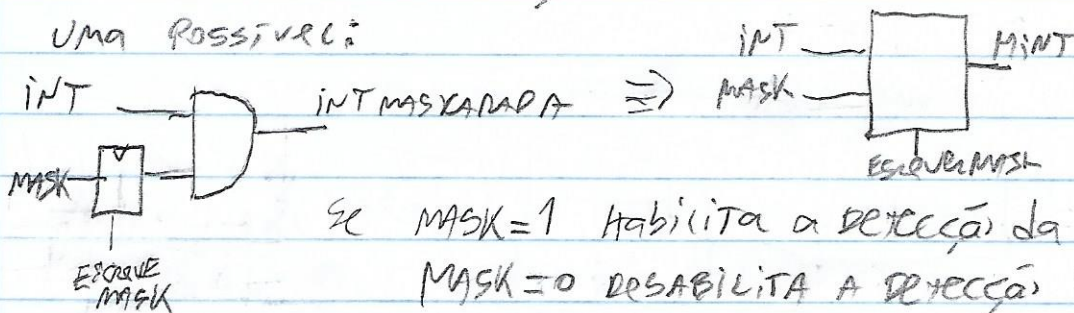 Uma Possível:
INT
MASK
ESCREVE
MASK
INT MASKARADA
⇒
INT
MASK
MINT
ESCREVEMASK
Se MASK=1 Habilita a Detecção da
MASK=0 DESABILITA A Detecção